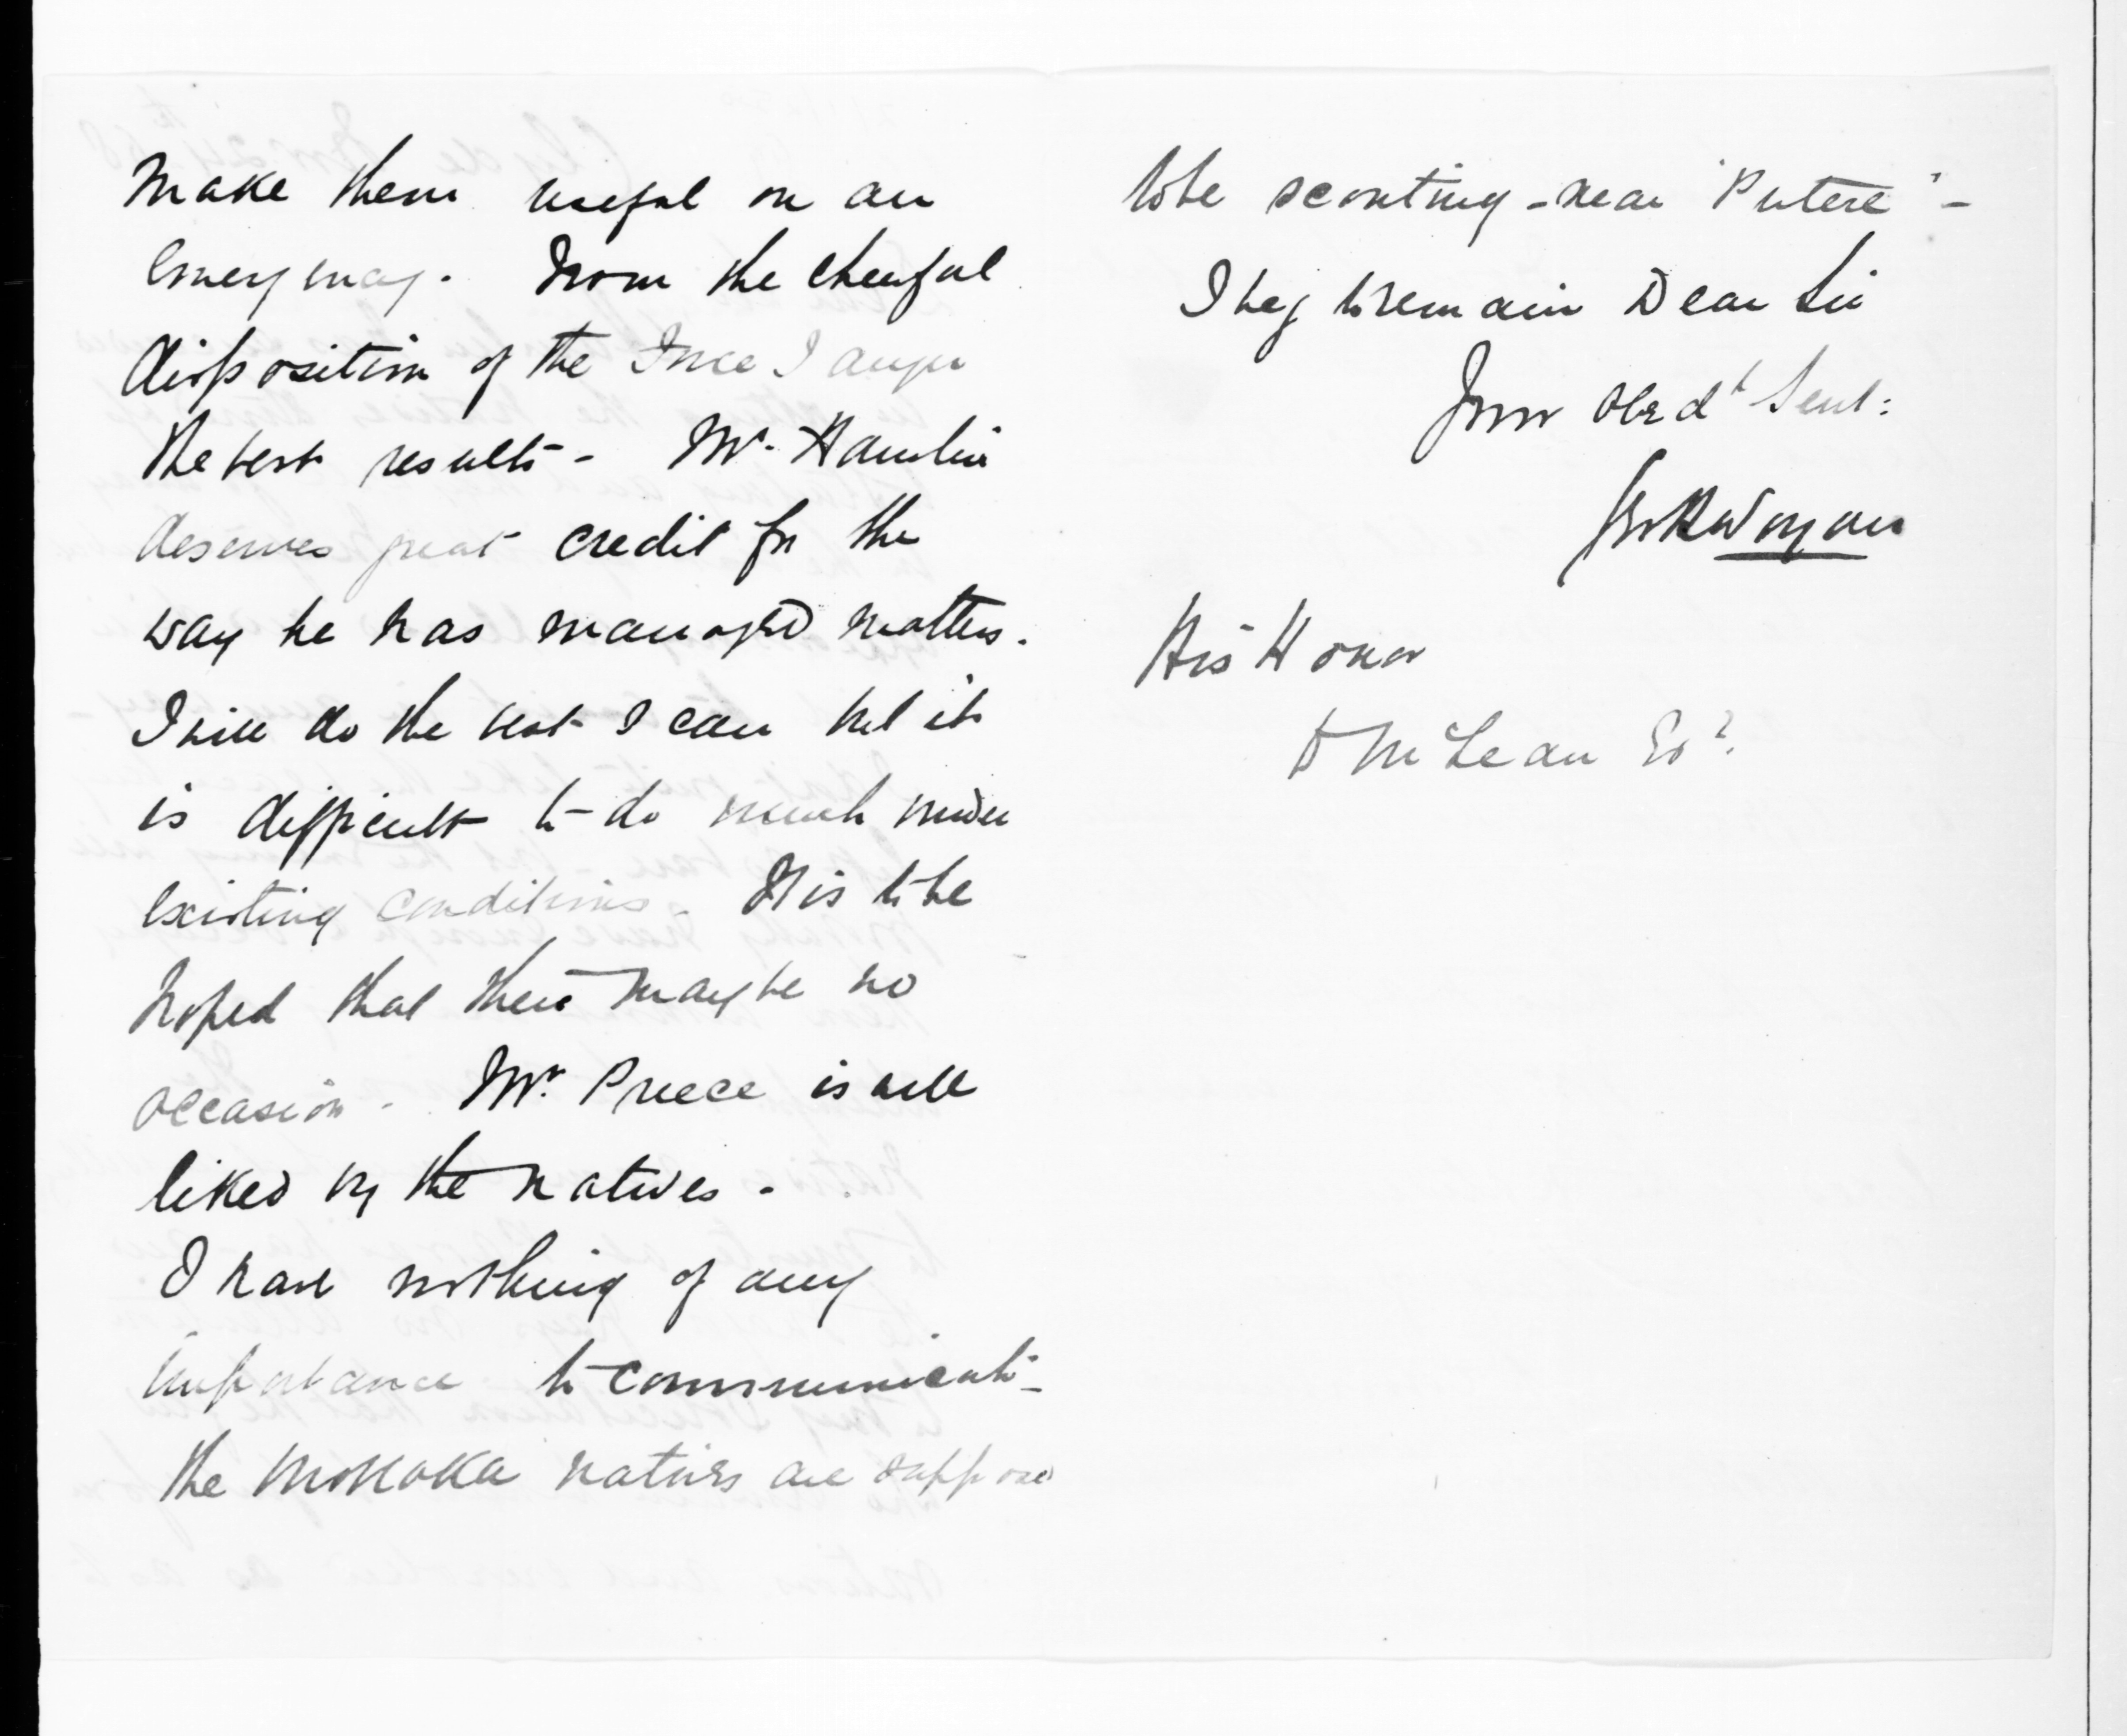 make them useful on an
emergency. From the cheerful
disposition of the Force I augur
the best results - Mr. Hamlin
deserves great credit for the
way he has managed matters.
I will do the best I can but it
is difficult to do much under
existing conditions. It is to be
hoped that there may be no
occasion - Mr. Preece is well
liked by the natives -
I have nothing of any
importance to communicate -
the Mohaka natives are supposed
to be scouting - near "Putere" -
I beg to remain Dear Sir
Your Obedt Servt:
Wyman
His Honor
D McLean Esqr.